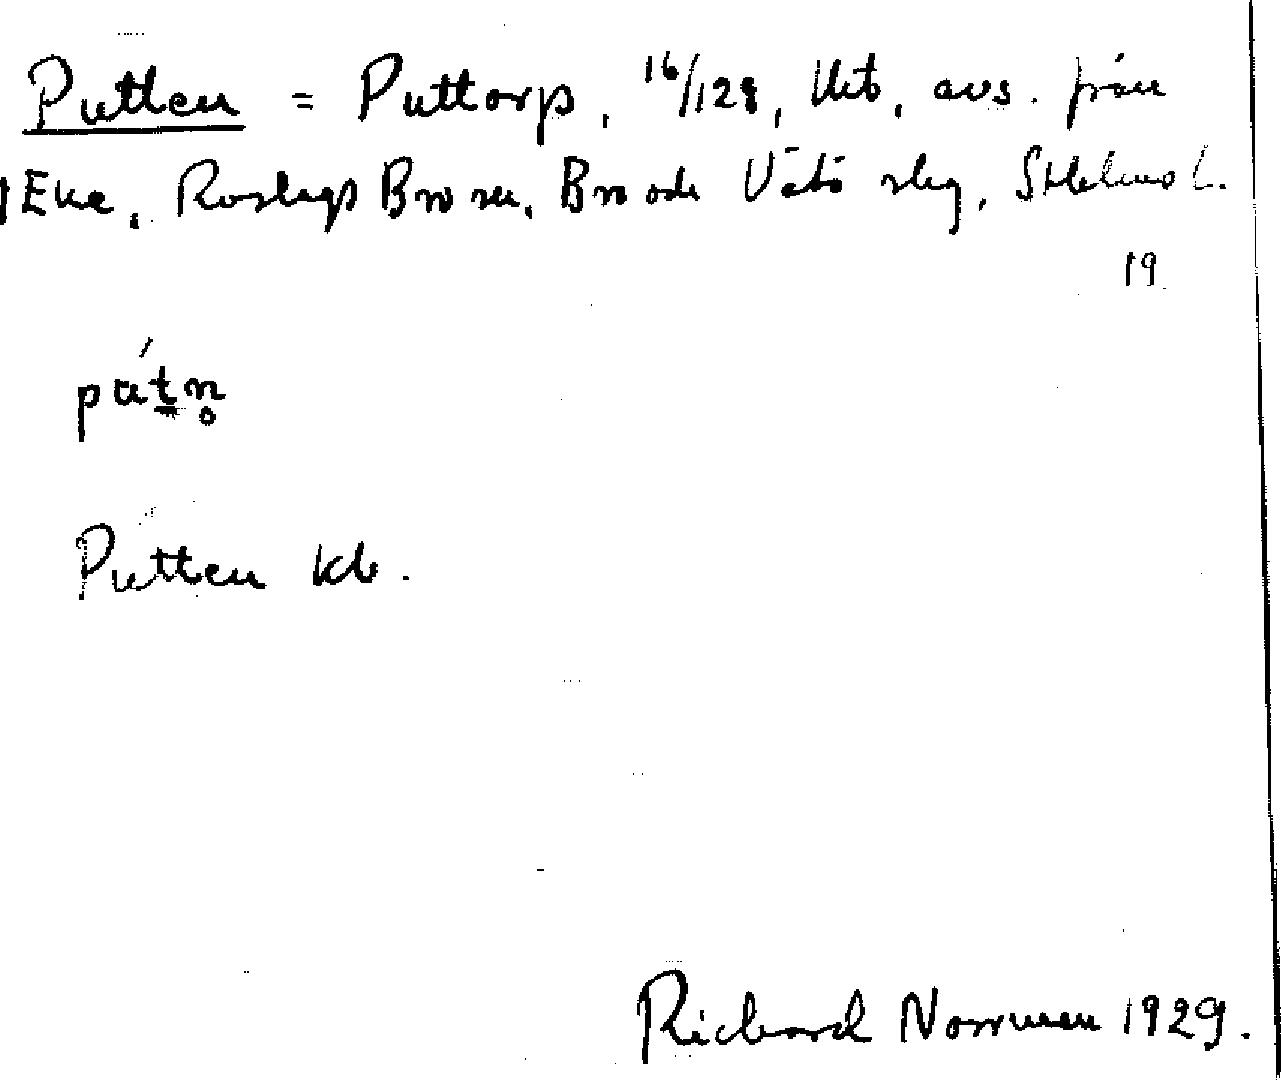 Putten = Puttorp, 16/128, Utb, avs. från
Eke, Roslags Bro sn, Bro och Vätö slg, Sthlms l.
19
pút̠n̥
Putten kb.
Richard Norrman 1929.